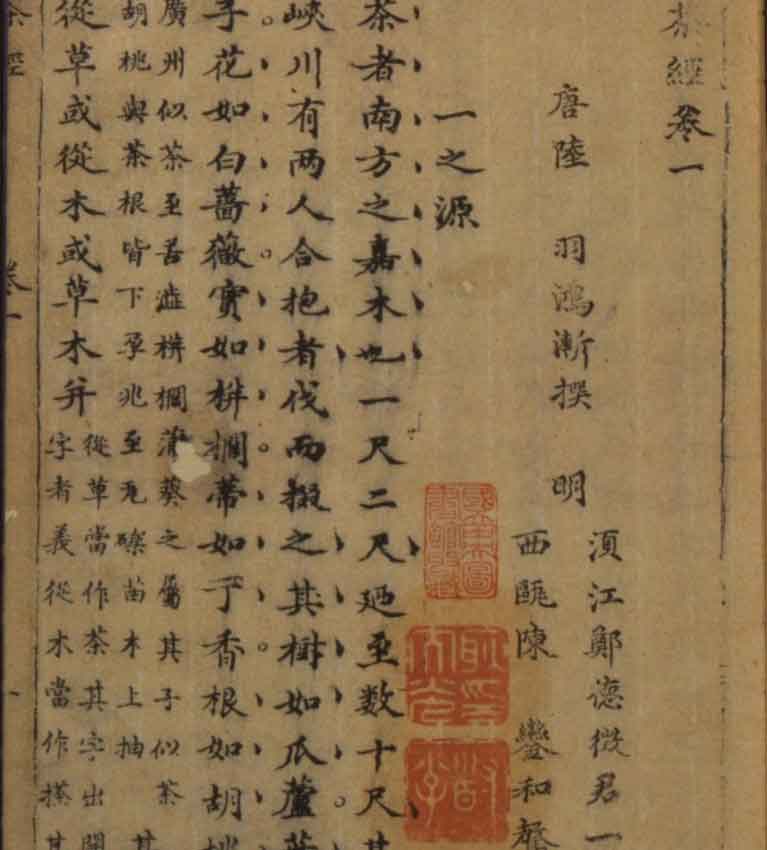 茶經卷一
唐陸 羽鴻漸撰 明
湏江鄭德徵君一
西甌陳 鑾和聲
一之源
茶者南方之嘉木也一尺二尺廼至数十尺其
峽川有两人合抱者伐而掇之其樹如瓜蘆葉
子花如白薔薇實如栟櫚蒂如丁香根如胡桃
廣州似茶至苦澁栟櫚蒲葵之屬其子似茶
胡桃與茶根皆下孕兆至瓦礫苗木上抽 其
從草或從木或草木并
從草當作茶其字出開
字者義從木當作搽其
茶經 卷一 一